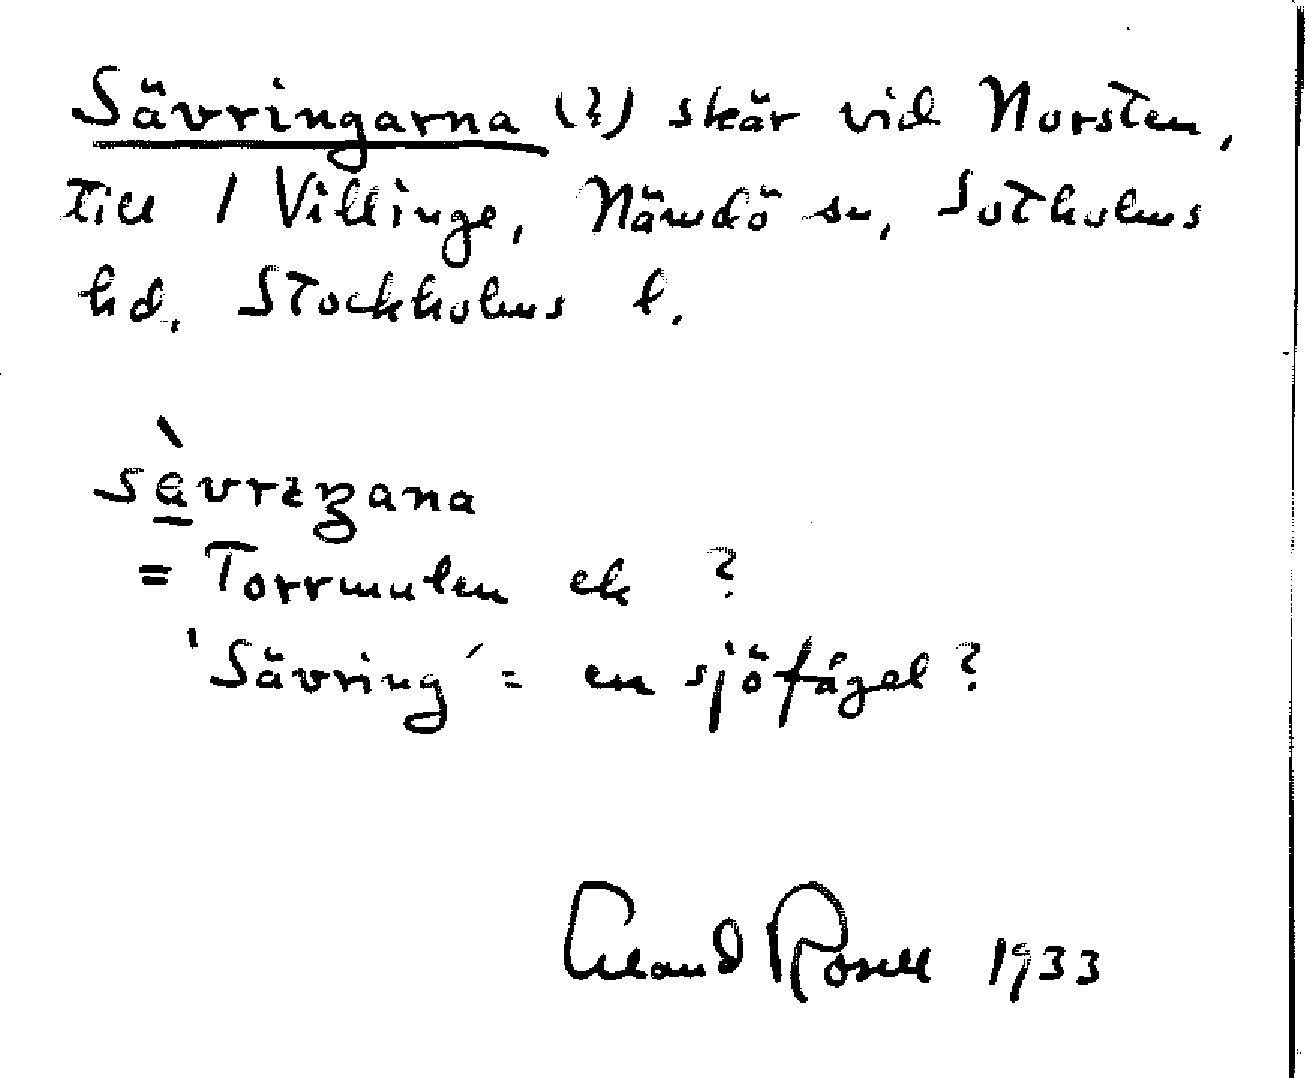 Sävringarna (?) skär vid Norsten,
till 1 Villinge, Nämdö sn, Sotholms
hd. Stockholms l.
sὲvrɩŋana
= Torrmulen ek ?
'Sävring' = en sjöfågel ?
Erland Rosell 1933